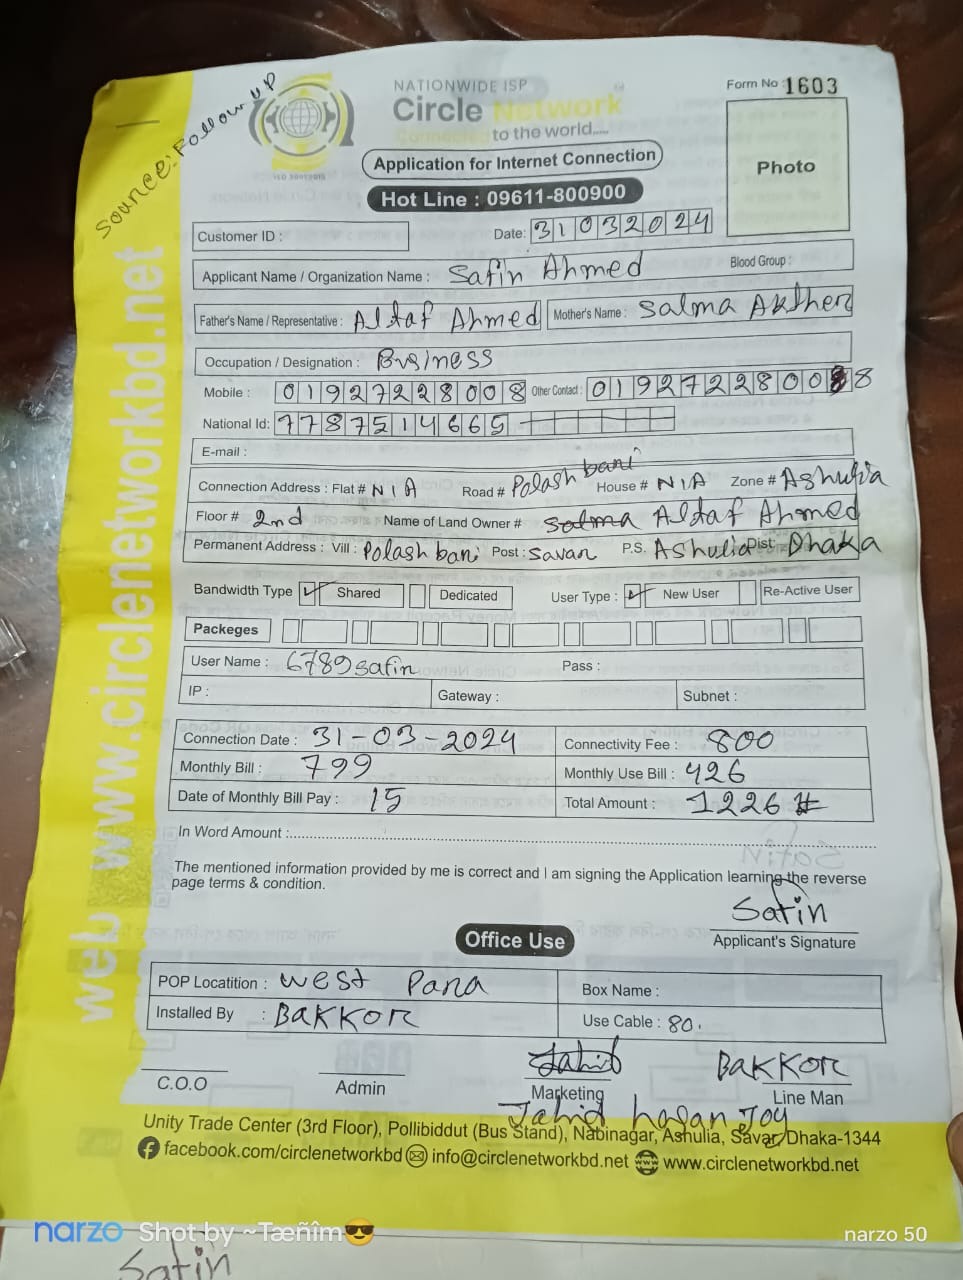 Source: Follow up
NATIONWIDE ISP
Circle Network
Connected to the world.....
ISO 9001:2015
Form No : 1603
Photo
Application for Internet Connection
Hot Line : 09611-800900
Customer ID :
Date: 31032024
Applicant Name / Organization Name : Safin Ahmed Blood Group :
Father's Name / Representative : Altaf Ahmed Mother's Name : Salma Akther
Occupation / Designation : Business
Mobile : 01927228008 Other Contact : 01927228008 8
National Id: 7787514665
E-mail :
Connection Address : Flat # N/A Road # Polash bari House # N/A Zone # Ashulia
Floor # 2nd Name of Land Owner # Salma Altaf Ahmed
Permanent Address : Vill : Polash bari Post : Savar P.S. Ashulia Dist: Dhaka
Bandwidth Type Shared Dedicated User Type : New User Re-Active User
Packeges
User Name : 6789safin Pass :
IP : Gateway : Subnet :
Connection Date : 31-03-2024 Connectivity Fee : 800
Monthly Bill : 799 Monthly Use Bill : 426
Date of Monthly Bill Pay : 15 Total Amount : 1226 #
In Word Amount :
The mentioned information provided by me is correct and I am signing the Application learning the reverse
page terms & condition.
Safin
Applicant's Signature
Office Use
POP Locatition : West Para Box Name :
Installed By : BAKKOR Use Cable : 80.
Jahid BAKKOR
C.O.O Admin Marketing Line Man
Jahid hasan Joy
Unity Trade Center (3rd Floor), Pollibiddut (Bus Stand), Nabinagar, Ashulia, Savar, Dhaka-1344
facebook.com/circlenetworkbd info@circlenetworkbd.net www.circlenetworkbd.net
web www.circlenetworkbd.net
narzo Shot by ~Tæñîm😎 narzo 50
Safin